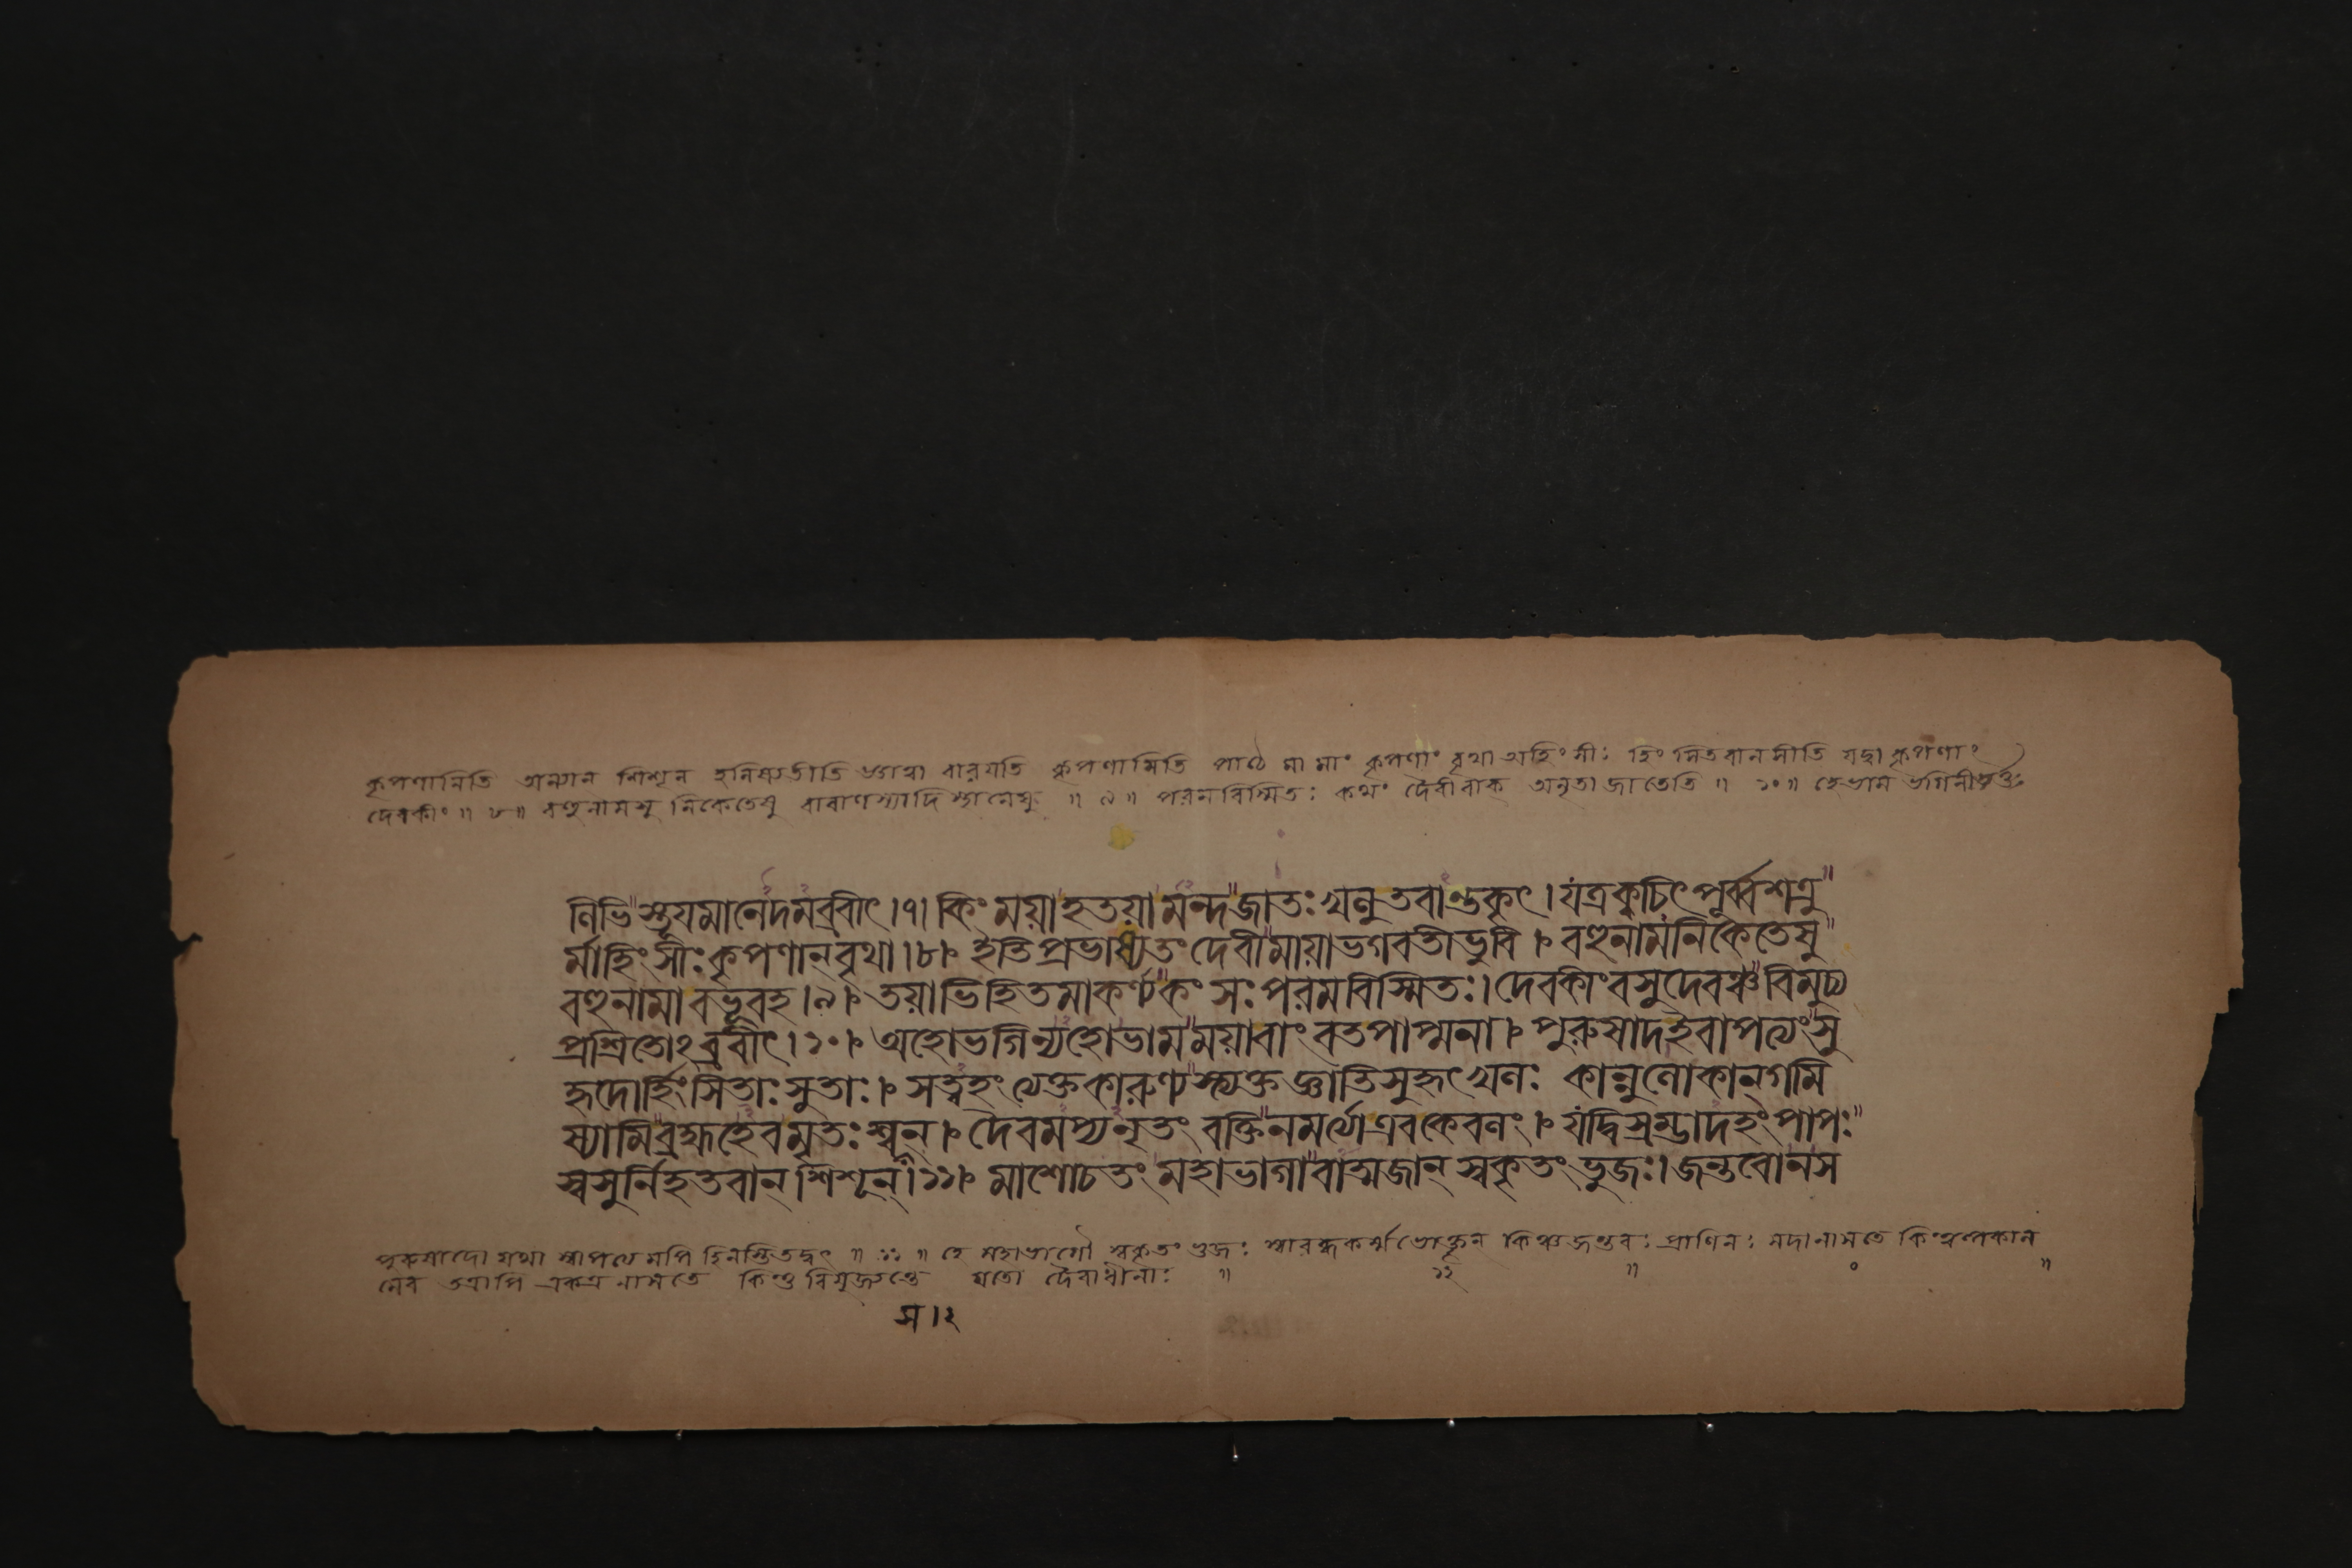 কৃপণানিতি অন্যান শিশূন হনিষ্যতীতি জ্ঞাত্বা বারয়তি কৃপণামিতি পাঠে মা মাং কৃপণাং বৃথা অহিংসীঃ হিংসিতবানসীতি যদ্বা কৃপণাং
দেবকীং ॥ ৮ ॥ বহুনামসু নিকেতেষু বারাণস্যাদি স্থানেষু ॥ ৯ ॥ পরমবিস্মিতঃ কথং দৈবীবাক্ অনৃতা জাতেতি ॥ ১০ ॥ হেভাম ভগিনীভর্ত্তঃ
ণিভি স্তূযমানেদমব্রবীৎ।৭। কিং ময়াহতয়া মন্দ জাতঃ খলু তবান্তকৃৎ। যত্রকুচিৎ পূর্ব্বশত্রু
র্মাহিংসীঃ কৃপণান্ বৃথা।৮। ইতি প্রভাষ্যতং দেবী মায়াভগবতীভুবি। বহুনামনিকেতেষু
বহুনামা বভূবহ।৯। তয়াভিহিতমাকর্ণ্য কংসঃ পরমবিস্মিতঃ। দেবকীং বসুদেবঞ্চ বিমুচ্য
প্রশ্রিতোঽব্রবীৎ।১০। অহোভগিন্যহোভাম ময়াবাং বতপাপ্মনা। পুরুষাদইবাপত্যং সু
হৃদোর্হিংসিতাঃ সুতাঃ। সত্বহং ত্যক্তকারুণ্য স্ত্যক্ত জ্ঞাতিসুহৃৎ খলঃ কান্নুলোকান্ গমি
ষ্যামি ব্রহ্মহেবমৃতঃ শ্বসন্। দৈবমপ্যনৃতং বক্তি নমর্ত্যা এবকেবলং। যদ্বিস্রম্ভাদহং পাপঃ
স্বসুর্নিহতবান্ শিশূন্।১১। মাশোচতং মহাভাগা বাত্মজান্ স্বকৃতং ভুজঃ। জন্তবোনস
পুরুষাদো যথা স্বাপত্যমপি হিনস্তি তদ্বৎ ॥ ১১ ॥ হে মহাভাগৌ স্বকৃতং ভুজঃ স্বারব্ধকর্ম্মভোক্তৃন কিঞ্চ জন্তবঃ প্রাণিনঃ সদা নাসতে কিং
নেব তত্রাপি একত্র নাসতে কিন্তু বিযুজ্যন্তে যতো দৈবাধীনাঃ ॥ ১২ ॥
স।২